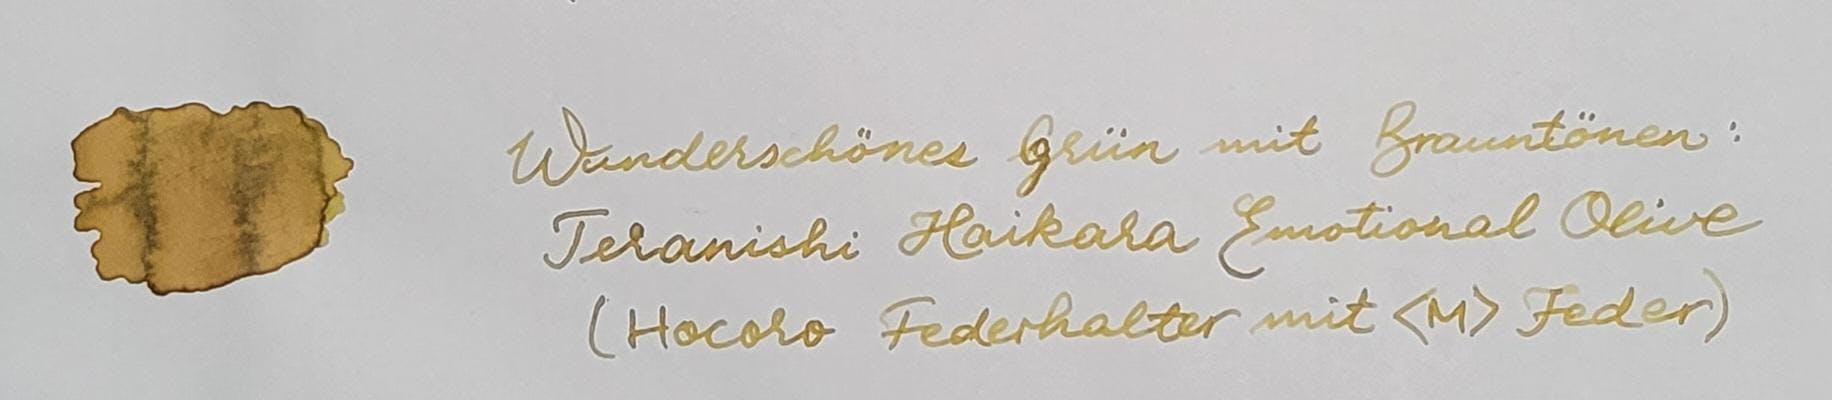 Wunderschönes Grün mit Brauntönen:
Teranishi Haikara Emotional Olive
(Hocoro Federhalter mit <M> Feder)